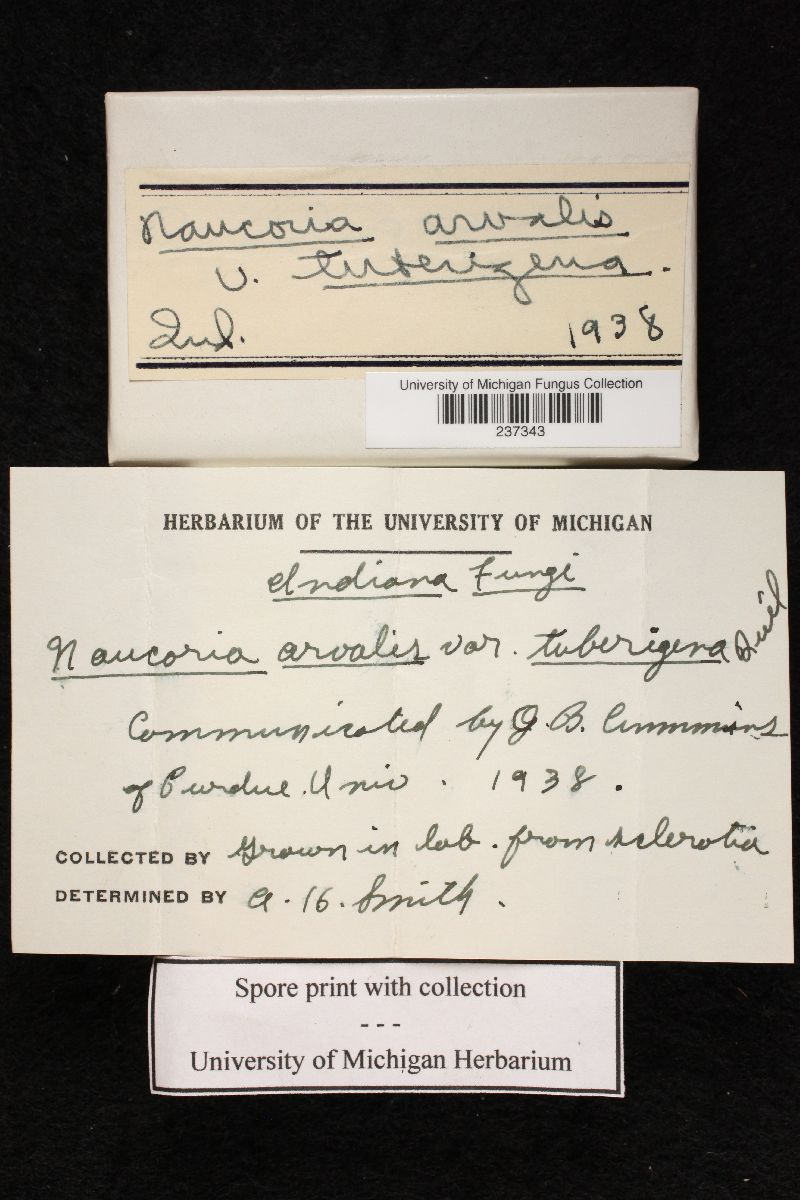 Naucoria arvalis
v. tuberigena.
Ind. 1938
University of Michigan Fungus Collection
237343
HERBARIUM OF THE UNIVERSITY OF MICHIGAN
Indiana Fungi
Naucoria arvalis var. tuberigena Quél
Communicated by G. B. Cummins
of Purdue Univ. 1938.
COLLECTED BY Grown in lab. from sclerotia
DETERMINED BY A. H. Smith.
Spore print with collection
---
University of Michigan Herbarium